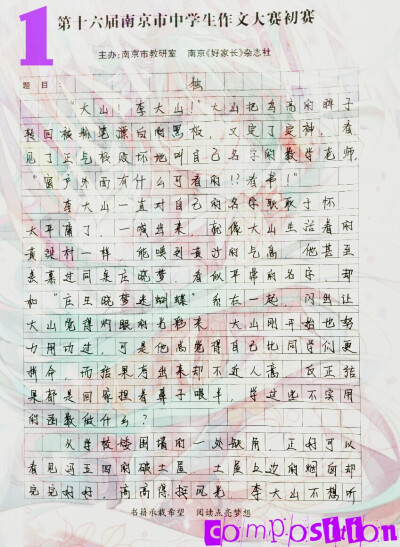 1
第十六届南京市中学生作文大赛初赛
主办:南京市教研室 南京《好家长》杂志社
题目: 独
"大山!李大山!"大山把高高的脖子
转回被粉笔漂白的黑板,又定了定神,看
见了正气极败坏地叫自己名字的数学老师。
"窗户外面有什么可看的!?看书!"
李大山一直对自己的名字耿耿于怀
太平庸了,一喊出来,就像大山生活着的
黄坡村一样,能喂到黄沙的气息 他甚至
羡慕过同桌庄晓梦,看似平常的名字,却
和"庄生晓梦迷蝴蝶"系在一起 闪出让
大山觉得灼眼的光彩来 大山刚开始也努
力用功过,可是他总觉得自己比同学们更
拼命,而结果考出来却不近人高 反正结
果都是回家担着鼻子喂羊,学这些不实用
的函数做什么?
从学校矮围墙的一处缺角,正好可以
看见冯五四的破土屋 土屋上边的烟囱却
完完好好,高高得挺风光 李大山不想听
书籍承载希望 阅读点亮梦想
composition